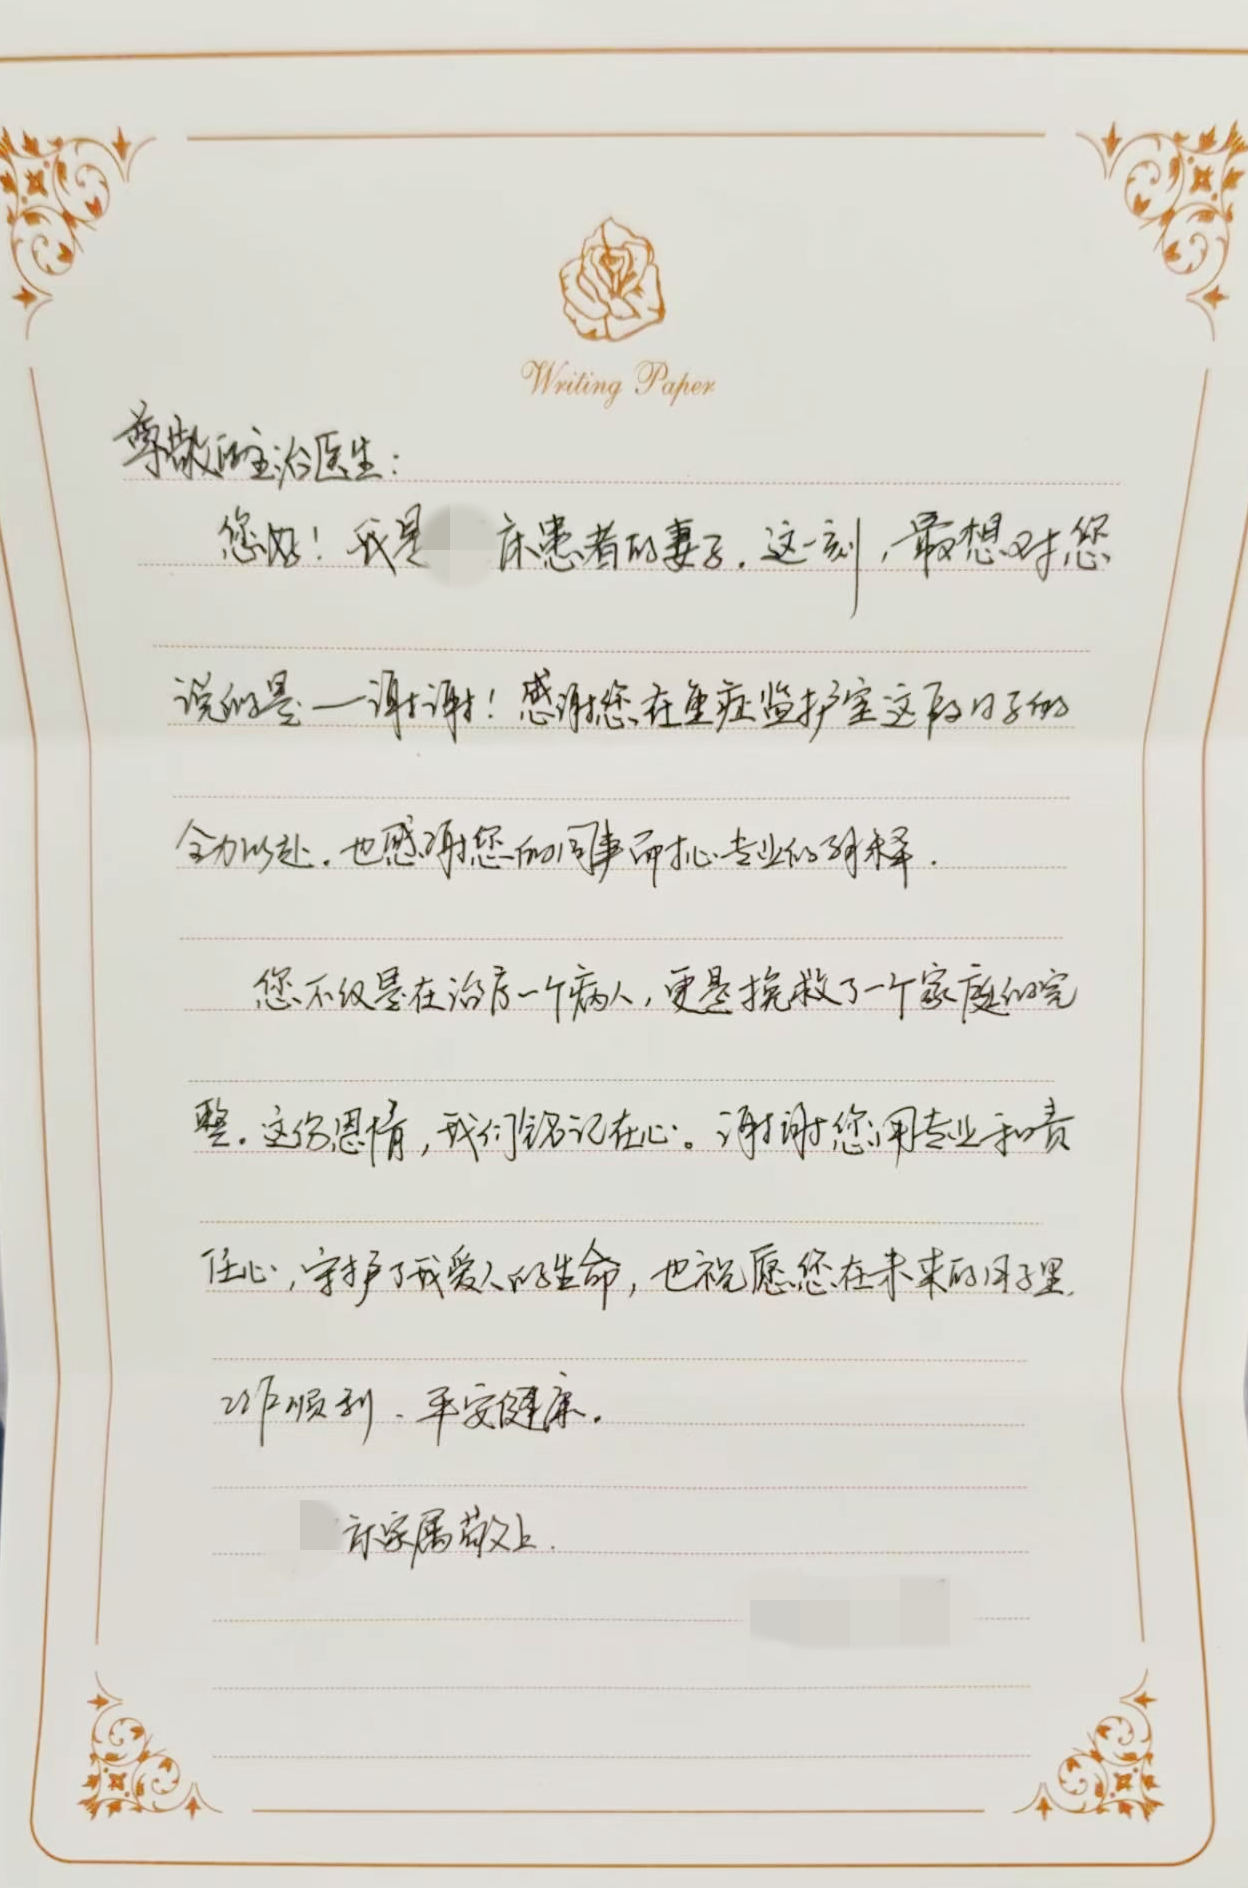 Writing Paper
尊敬的主治医生：
您好！我是 床患者的妻子。这一刻，最想对您
说的是一谢谢！感谢您在重症监护室这段日子的
全力以赴．也感谢您的同事耐心专业的解释．
您不仅是在治疗一个病人，更是挽救了一个家庭的完
整．这份恩情，我们铭记在心。谢谢您用专业和责
任心，守护了我爱人的生命，也祝愿您在未来的日子里，
工作顺利、平安健康．
床家属敬上．